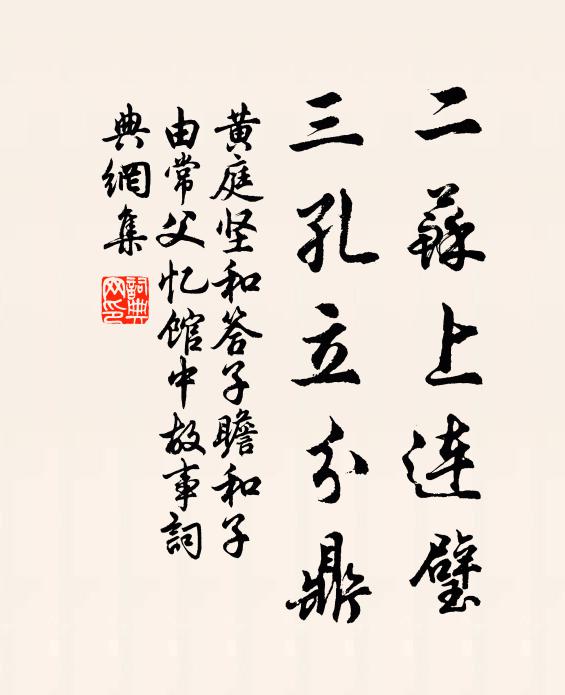 二蘇上連璧
三孔立分鼎
黄庭坚和答子瞻和子
由常父忆館中故事詞
典網集
詞典
网印